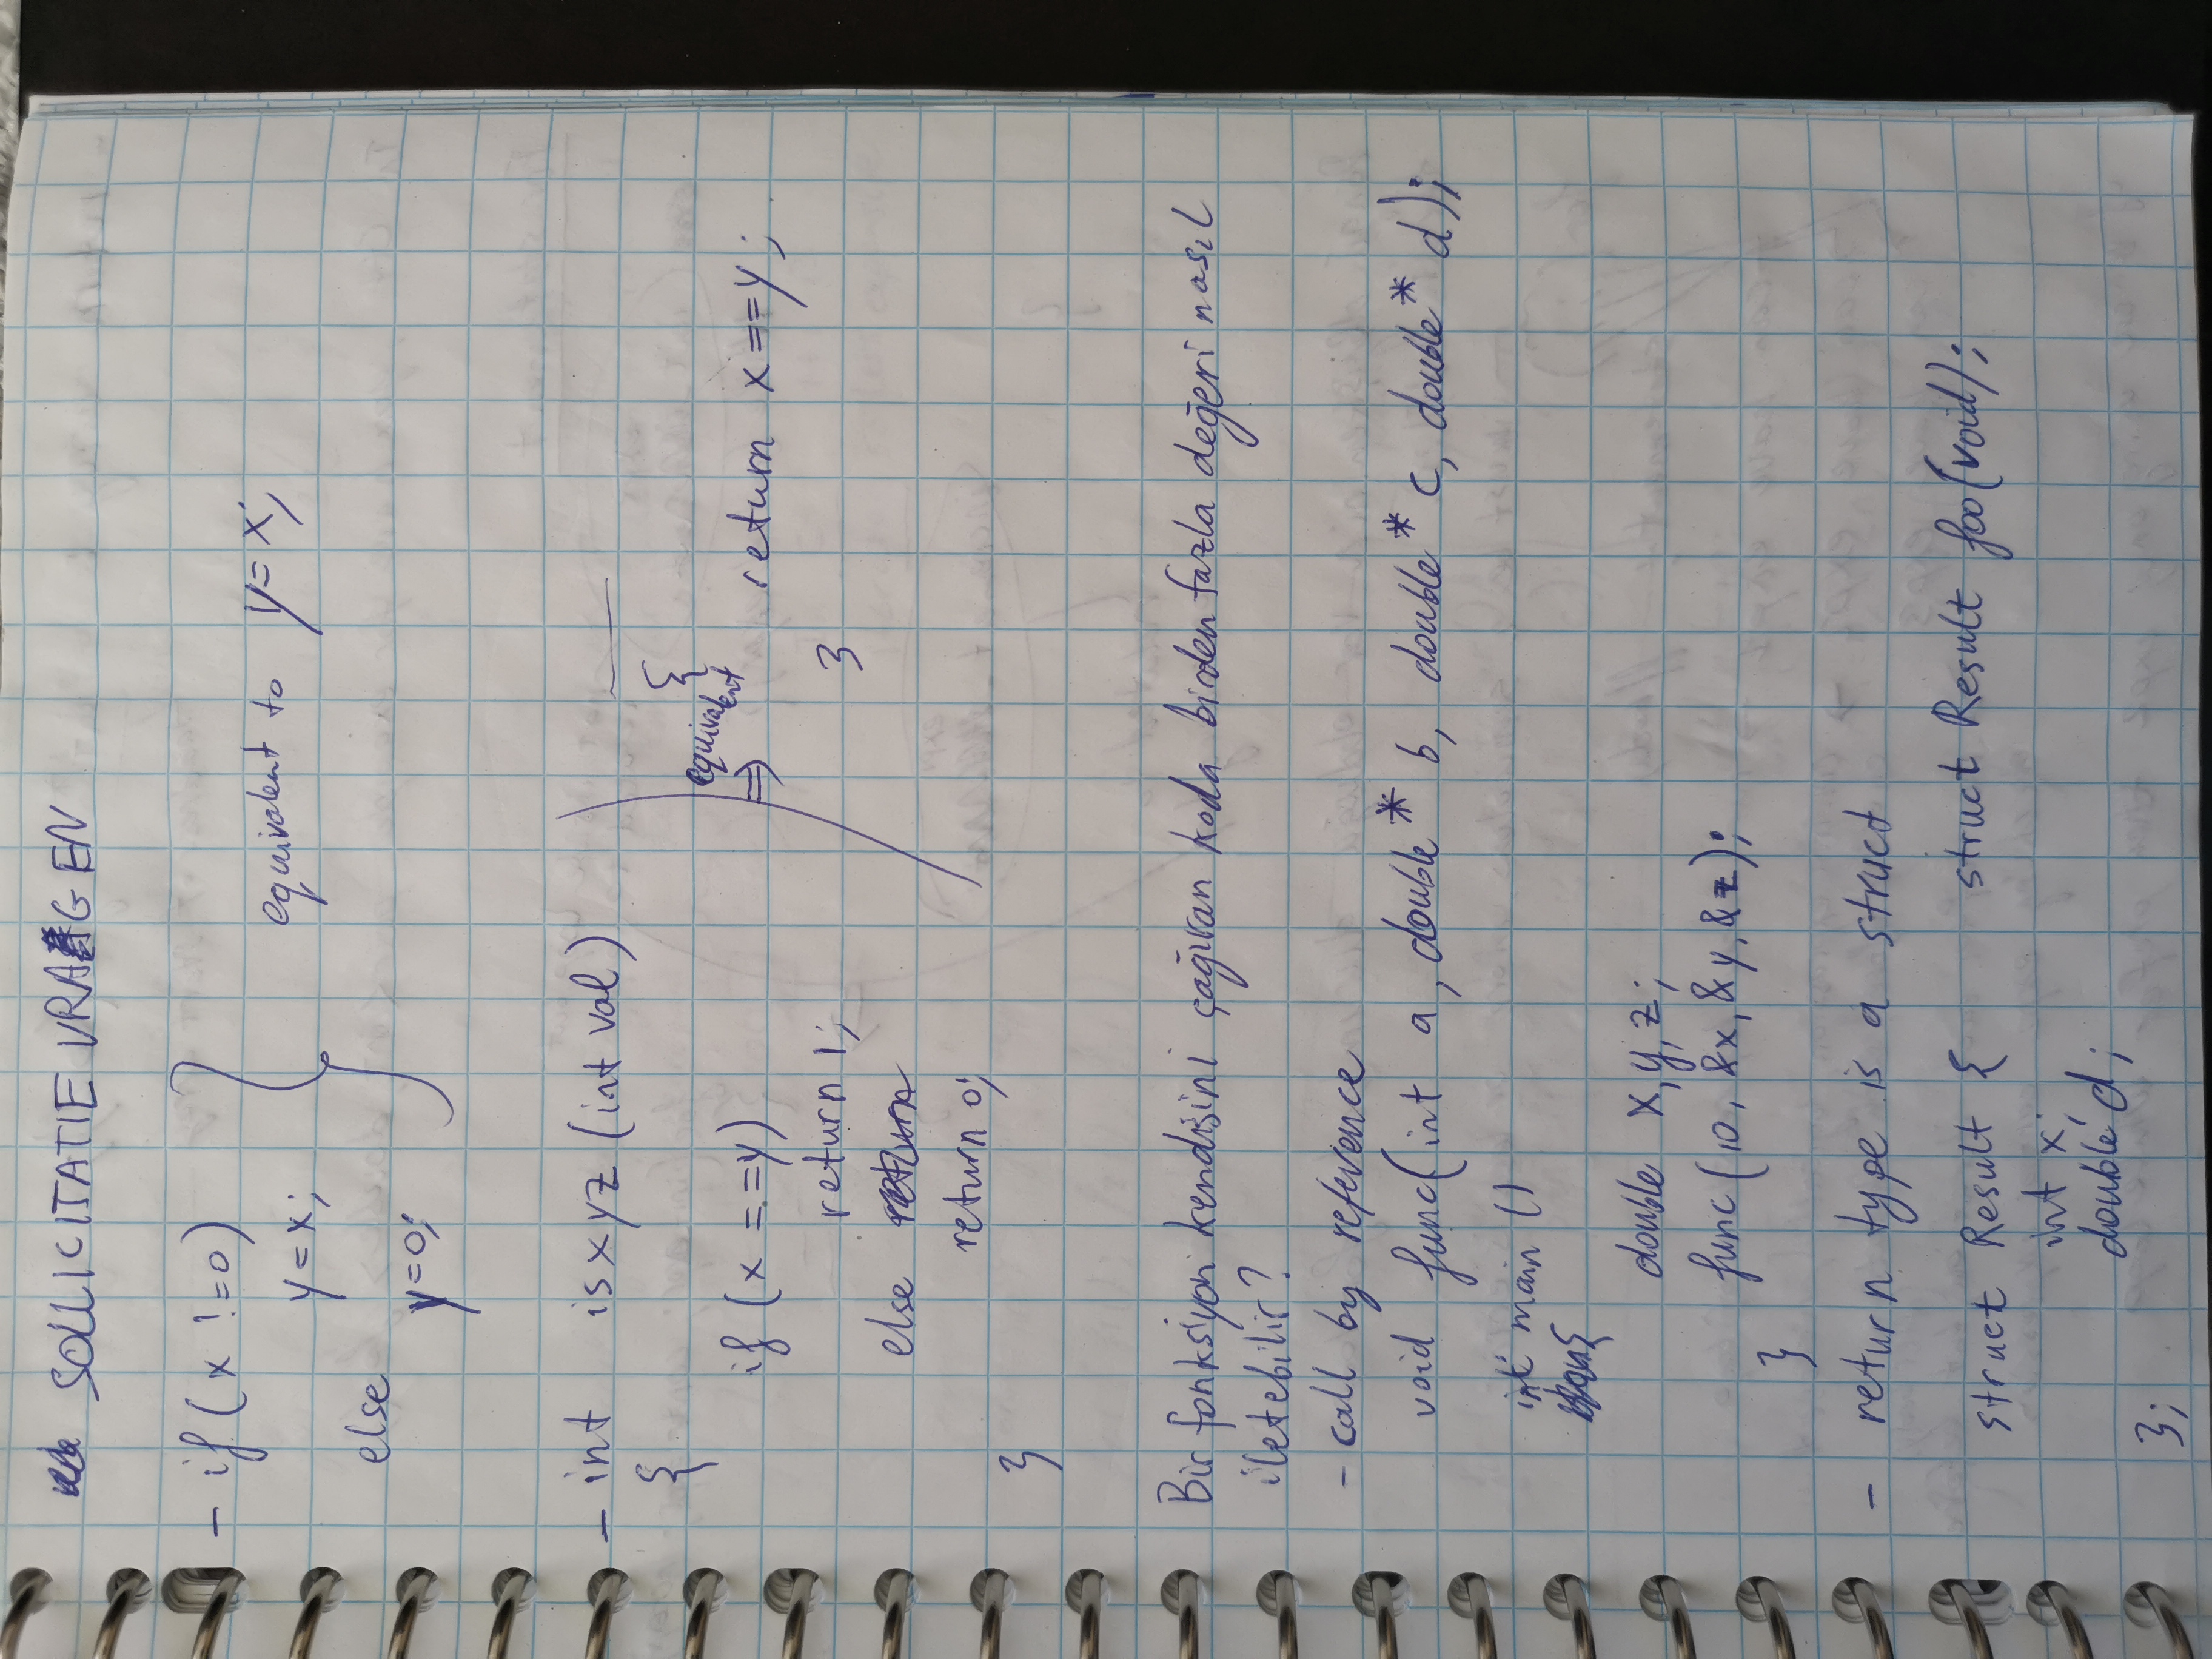 SOLLICITATIE VRAGEN
- if (x != 0)
y = x;
else
y = 0;
equivalent to y = x;
- int isxyz (int val)
{
if (x == y)
return 1;
else return
return 0;
}
equivalent
⇒
{
return x == y;
}
Bir fonksiyon kendisini çağıran koda birden fazla değeri nasıl
iletebilir?
- call by reference
void func(int a, double* b, double* c, double* d);
int main ()
{
double x, y, z;
func (10, &x, &y, &z);
}
- return type is a struct
struct Result {
int x;
double d;
};
struct Result foo(void);